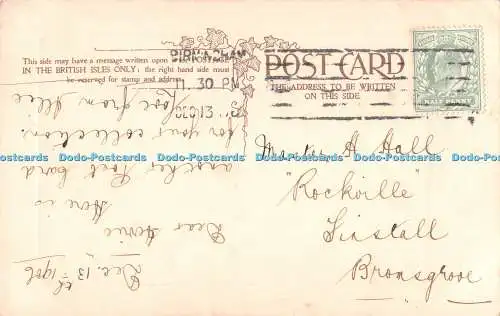 BIRMINGHAM
11.30 PM
This side may have a message written upon it for POSTAGE
IN THE BRITISH ISLES ONLY: the right hand side must
be reserved for stamp and address.
POST CARD
THE ADDRESS TO BE WRITTEN
ON THIS SIDE.
HALF PENNY
Dec. 13th 1906
Dear
Here is
another Post Card
for your collection.
Love from Allie
Master H Hall
"Rockville"
Finstall
Bromsgrove
Dodo-Postcards Dodo-Postcards Dodo-Postcards Dodo-Postcards Dodo-Postcards